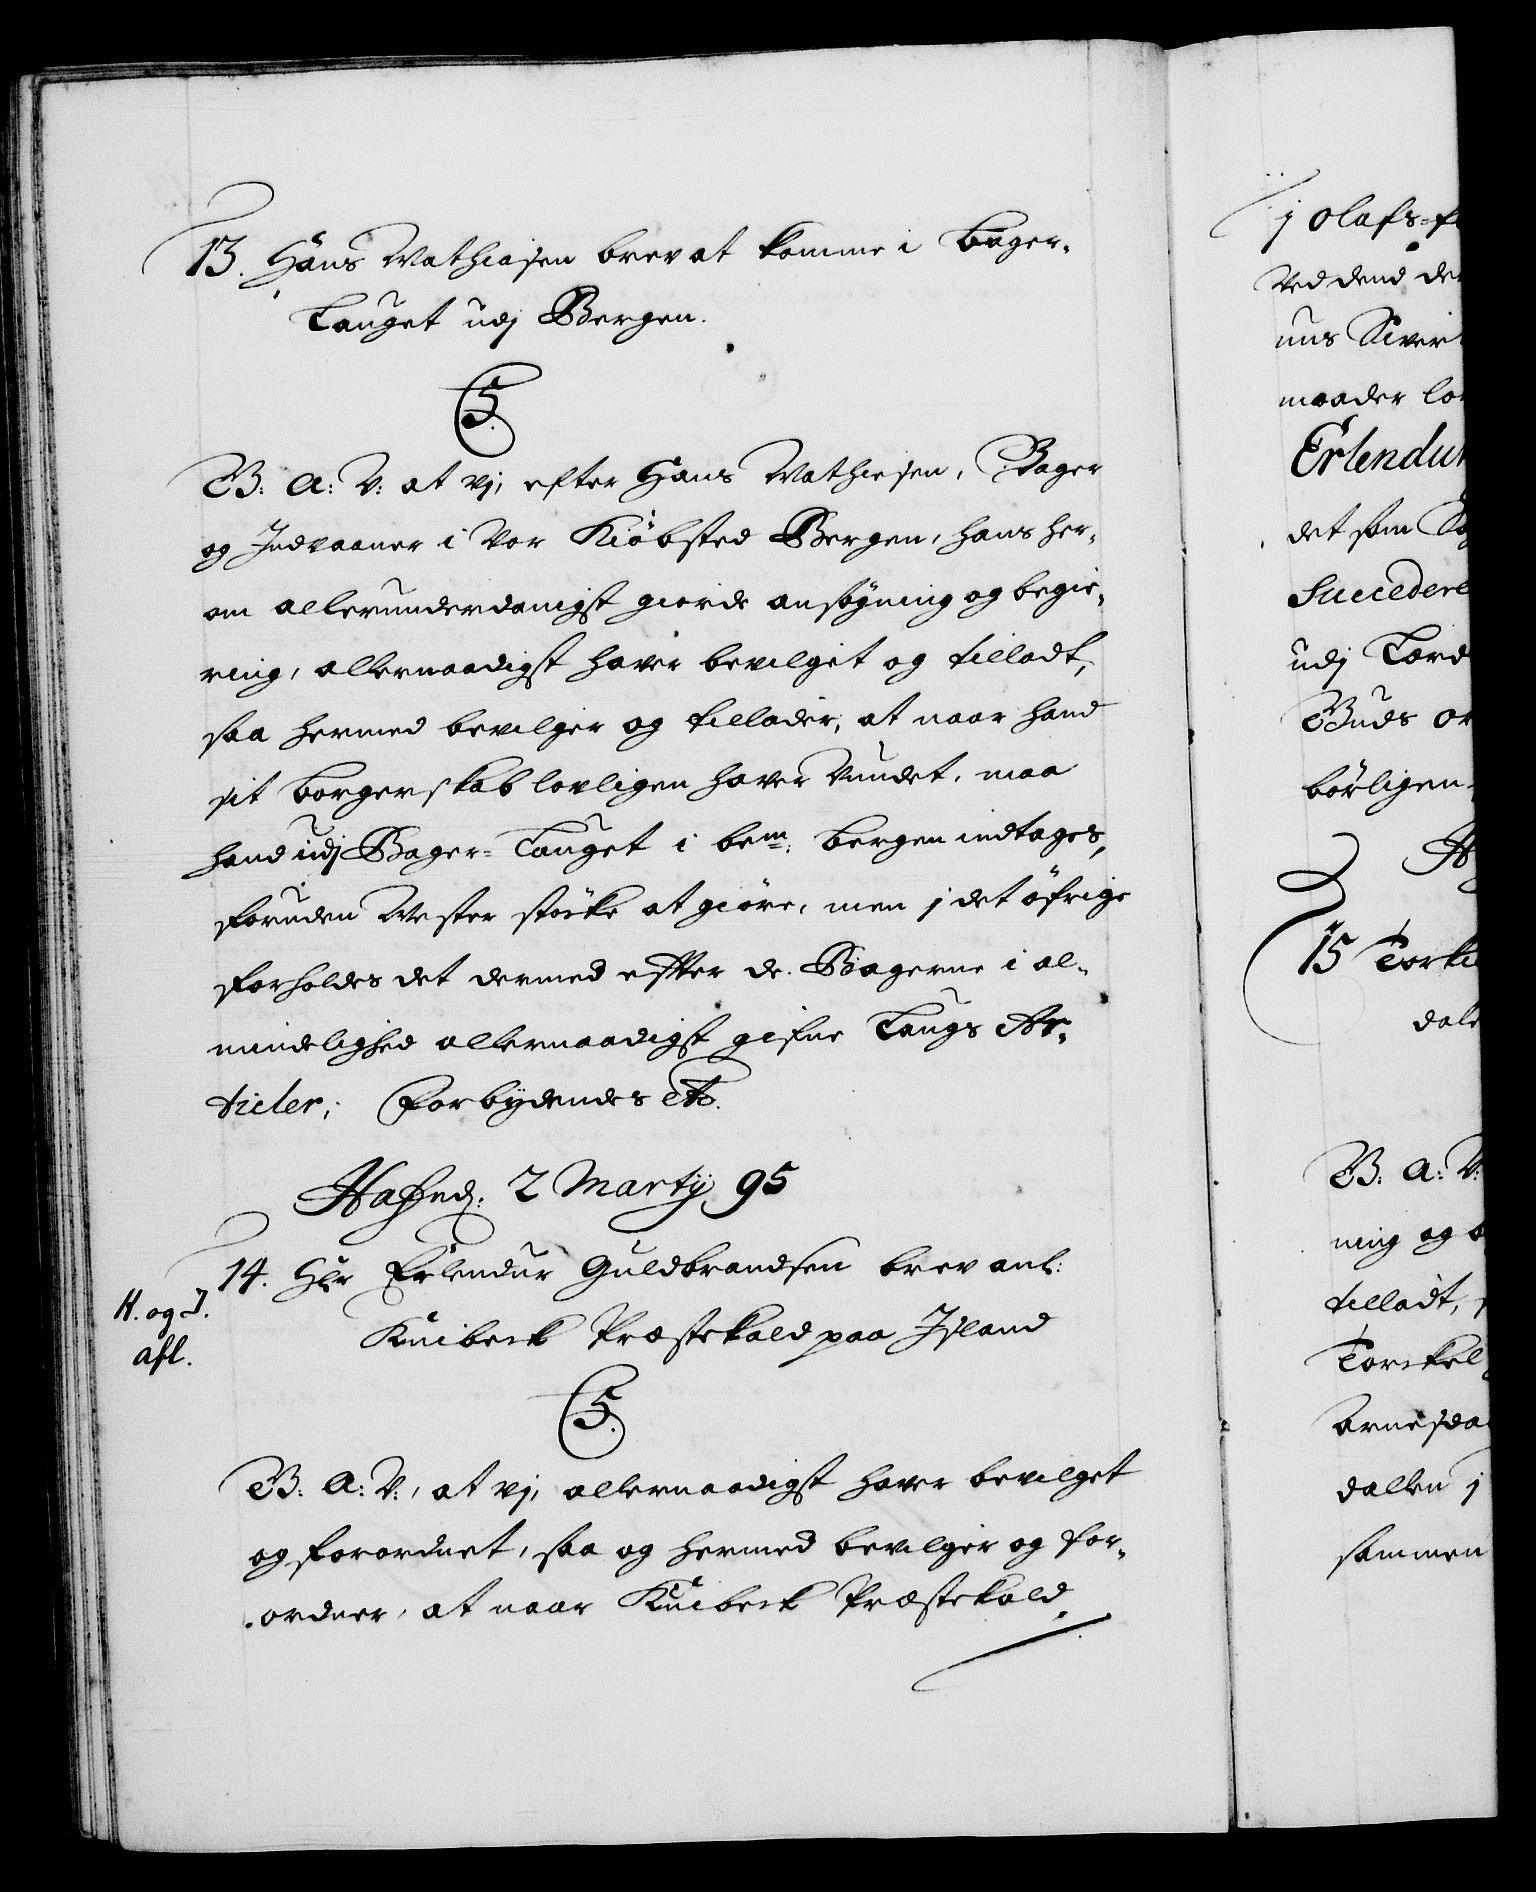 13. Hans Mathiasen brev at komme i Bager-
Lauget udj Bergen.
C5.
G: A: V: at vj, efter Hans Mathiesen, Bager
og Indvaaner i Vor Kiöbsted Bergen, hans her-
om allerunderdanigst giorde ansögning og begie-
ring, allernaadigst haver bevilget og tilladt,
saa hermed bevilger og tillader, at naar hand
sit Borgerskab lovligen haver Vundet, maa
hand udj Bager-Lauget i bem: Bergen indtages,
foruden Mester stöcke at giöre, men j det öfrige
forholdes det dermed effter de Bagerne i al-
mindelighed allernaadigst gifne Laugs Ar-
ticler; Forbydendes etc.
Hafned: 2 Martij 95
14. Hr Erlendur Guldbrandsen brev anl:
Kuibeck Præstekald paa Island
H. og J.
afl.
C5.
G: A: V:, at vj, allernaadigst haver bevilget
og forordnet, saa og hermed bevilger og for-
ordner, at naar Kuibeck Præstekald
j Olafs-f
Ved dend de
uus Siver
maader lo
Erlendur
det som So
Succedere
udj
Guds or
börligen
15 Torke
dale
G: A: V:
ning og b
tilladt, s
Torckel
Arnesda
dallen j
sammen